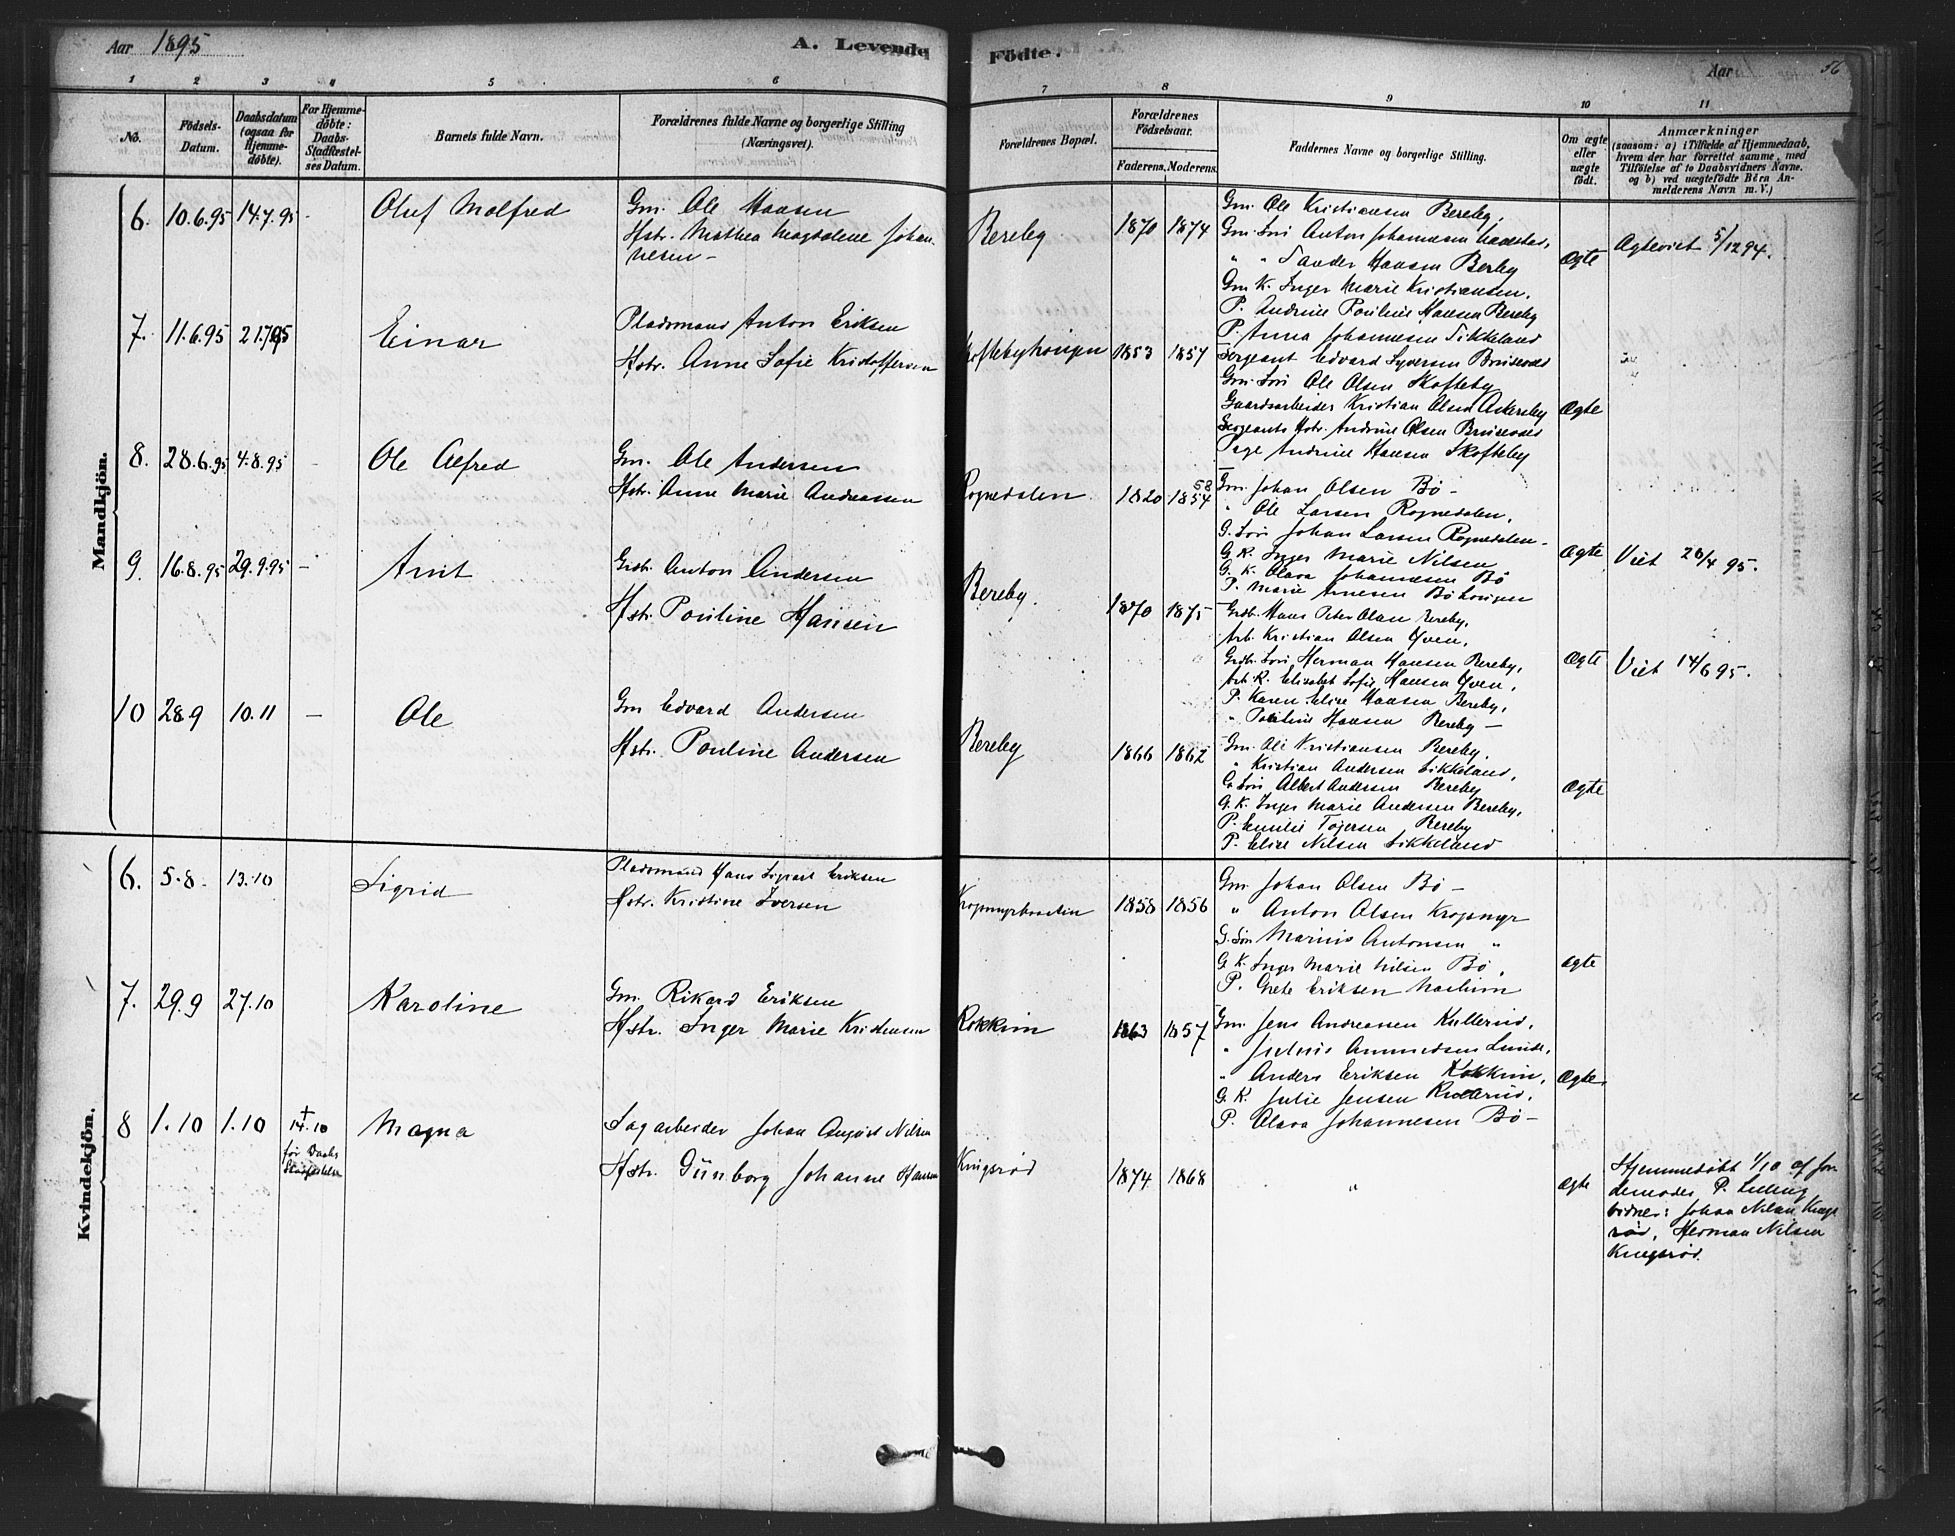 Aar 1895
A. Levende
Födte.
Aar
56
1 2 3 4 5 6 7 8 9 10 11
No.
Födsels-Datum.
Daabsdatum (ogsaa for Hjemme-döbte).
For Hjemme-döbte: Daabs-Stadfæstel-ses Datum.
Barnets fulde Navn.
Forældrenes fulde Navne og borgerlige Stilling
(Næringsvei).
Forældrenes Bopæl.
Forældrenes Födselsaar.
Faderens. Moderens.
Faddernes Navne og borgerlige Stilling.
Om ægte eller uægte födt.
Anmærkninger
(saasom: a) i Tilfælde af Hjemmedaab,
hvem der har forrettet samme, med
Tilföielse af to Daabsvidners Navne.
og b) ved uægtefödte Börn An-
melderens Navn m. V.)
Mandkjön.
6. 10.6.95 14.7.95 - Oluf Molfred
Gm. Ole Hansen
Hstr. Mathea Magdalene Johan-
nesen -
Bereby 1870 1874
Gm. Ole Kristiansen Bereby.
Gm. Søn Anton Johannesen
" " Sander Hansen Berby
Gm. K. Inger Marie Kristiansen.
P. Andrine Pouline Hansen Bereby
P. Anna Johannesen Sikkeland
Ægte
Ægteviet 5/12 94.
7. 11.6.95 21.7.95 Einar
Pladsmand Anton Eriksen
Hstr. Anne Sofie Kristoffersen
Skoftebyhougen 1853 1857
Sergeant Edvard Syversen
Gm. Søn Ole Olsen Skofteby
Gaardsarbeider Kristian Olsen Askersby
Sergeants Hstr. Andrine Olsen
Pige Andrine Hansen Skofteby
Ægte
8. 28.6.95 4.8.95 - Ole Alfred
Gm. Ole Andersen
Hstr. Anne Marie Andreassen
Rognedalen 1820 1854 58
Gm. Johan Olsen Bø -
" Ole Larsen Rognedalen.
G. Søn Johan Larsen Rognedalen -
G. K. Inger Marie Nilsen
G. K. Clara Johannesen Bø
P. Marie Arnesen Bøhougen
Ægte
Viet 26/4 95.
9. 16.8.95 29.9.95 - Arnt
Grdbr. Anton Andersen
Hstr. Pouline Hansen
Bereby. 1870 1875
Grdbr. Hans Peter Olsen Bereby,
Arb. Kristian Olsen Yven,
Grdbr. Søn Herman Hansen Bereby,
Arb. K. Elisabet Sofie Hansen Yven,
P. Karen Elise Hansen Bereby,
" Pouline Hansen Bereby -
Ægte
Viet 14/6 95.
10 28.9 10.11 - Ole
Gm Edvard Andersen
Hstr. Pouline Andersen
Bereby 1866 1862
Gm. Ole Kristiansen Bereby,
" Kristian Andersen Sikkeland,
G. Søn Albert Andersen Bereby
G. K. Inger Marie Andersen Bereby,
P. Emilie Tøgersen Bereby
P. Elise Nilsen Sikkeland
Ægte
Kvindekjön.
6. 5.8. 13.10 Sigrid
Pladsmand Hans Sigvart Eriksen
Hstr. Kristine Iversen
1858 1856
Gm. Johan Olsen Bø -
" Anton Olsen Kropmyr
G. Søn Marius Antonsen "
G. K. Inger Marie Nilsen Bø,
P. Grete Eriksen
Ægte
7. 29.9 27.10 Karoline
Gm. Rikard Eriksen
Hstr. Inger Marie Kristensen
Kokkim 1863 1857
Gm. Jens Andreassen Kullerud,
" Julius Ammundsen Lunde,
" Anders Eriksen Kokkim,
G. K. Julie Jensen Kullerud,
P. Clara Johannesen Bø -
Ægte
8 1.10 1.10 † 14.10 før Daabs Stadfæstelse Magna
Sagarbeider Johan August Nilsen
Hstr. Günborg Johanne Hansen
Kingsrød 1874 1868
"
Ægte
Hjemmedøbt 1/10 af Jor-
demoder P.
vidner: Johan Nilsen Kings-
rød, Herman Nilsen
Kingsrød.